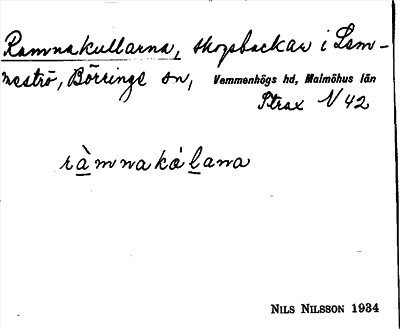 Ramnakullarna, skogsbackar i Lem-
meströ, Börringe sn, Vemmenhögs hd, Malmöhus län
Strax N 42
ràmnakálana
NILS NILSSON 1934